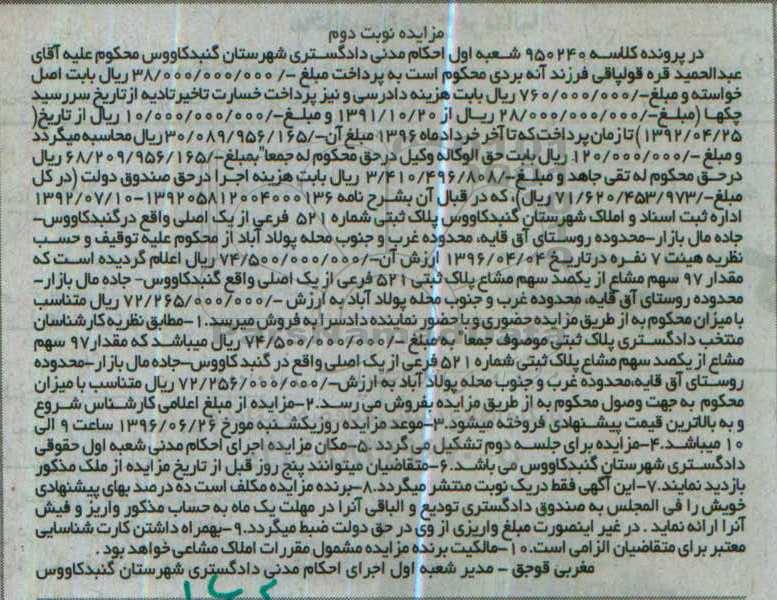 مزایده نوبت دوم
در پرونده کلاسه ۹۵۰۲۴۰ شعبه اول احکام مدنی دادگستری شهرستان گنبدکاووس محکوم علیه آقای
عبدالحمید قره قولپاقی فرزند آنه بردی محکوم است به پرداخت مبلغ -/۳۸/۰۰۰/۰۰۰/۰۰۰ ریال بابت اصل
خواسته و مبلغ-/۷۶۰/۰۰۰/۰۰۰ ریال بابت هزینه دادرسی و نیز پرداخت خسارت تاخیر تادیه از تاریخ سررسید
چکها (مبلغ-/۲۸/۰۰۰/۰۰۰/۰۰۰ ریال از ۱۳۹۱/۱۰/۲۰ و مبلغ-/۱۰/۰۰۰/۰۰۰/۰۰۰ ریال از تاریخ(
۱۳۹۲/۰۴/۲۵) تا زمان پرداخت که تا آخر خرداد ماه ۱۳۹۶ مبلغ آن-/۳۰/۰۸۹/۹۵۶/۱۶۵ ریال محاسبه میگردد
و مبلغ -/۱۲۰/۰۰۰/۰۰۰ ریال بابت حق الوکاله وکیل در حق محکوم له جمعا" بمبلغ-/۶۸/۲۰۹/۹۵۶/۱۶۵ ریال
در حق محکوم له تقی جاهد و مبلغ-/۳/۴۱۰/۴۹۶/۸۰۸ ریال بابت هزینه اجرا در حق صندوق دولت (در کل
مبلغ-/۷۱/۶۲۰/۴۵۳/۹۷۳ ریال)، که در قبال آن بشرح نامه ۱۳۹۲۰۵۸۱۲۰۰۴۰۰۰۱۳۶-۱۳۹۲/۰۷/۱۰
اداره ثبت اسناد و املاک شهرستان گنبدکاووس پلاک ثبتی شماره ۵۲۱ فرعی از یک اصلی واقع درگنبدکاووس-
جاده مال بازار-محدوده روستای آق قایه، محدوده غرب و جنوب محله پولاد آباد از محکوم علیه توقیف و حسب
نظریه هیئت ۷ نفره در تاریخ ۱۳۹۶/۰۴/۰۴ ارزش آن-/۷۴/۵۰۰/۰۰۰/۰۰۰ ریال اعلام گردیده است که
مقدار ۹۷ سهم مشاع از یکصد سهم مشاع پلاک ثبتی ۵۲۱ فرعی از یک اصلی واقع گنبدکاووس- جاده مال بازار-
محدوده روستای آق قایه، محدوده غرب و جنوب محله پولاد آباد به ارزش -/۷۲/۲۶۵/۰۰۰/۰۰۰ ریال متناسب
با میزان محکوم به از طریق مزایده حضوری و با حضور نماینده دادسرا به فروش میرسد.۱-مطابق نظریه کارشناسان
منتخب دادگستری پلاک ثبتی موصوف جمعا" به مبلغ -/۷۴/۵۰۰/۰۰۰/۰۰۰ ریال میباشد که مقدار ۹۷ سهم
مشاع از یکصد سهم مشاع پلاک ثبتی شماره ۵۲۱ فرعی از یک اصلی واقع در گنبد کاووس-جاده مال بازار-محدوده
روستای آق قایه،محدوده غرب و جنوب محله پولاد آباد به ارزش-/۷۲/۲۵۶/۰۰۰/۰۰۰ ریال متناسب با میزان
محکوم به جهت وصول محکوم به از طریق مزایده بفروش می رسد.۲-مزایده از مبلغ اعلامی کارشناس شروع
و به بالاترین قیمت پیشنهادی فروخته میشود.۳-موعد مزایده روز یکشنبه مورخ ۱۳۹۶/۰۶/۲۶ ساعت ۹ الی
۱۰ میباشد.۴-مزایده برای جلسه دوم تشکیل می گردد.۵-مکان مزایده اجرای احکام مدنی شعبه اول حقوقی
دادگستری شهرستان گنبدکاووس می باشد.۶-متقاضیان میتوانند پنج روز قبل از تاریخ مزایده از ملک مذکور
بازدید نمایند.۷-این آگهی فقط در یک نوبت منتشر میگردد.۸-برنده مزایده مکلف است ده درصد بهای پیشنهادی
خویش را فی المجلس به صندوق دادگستری تودیع و الباقی آنرا در مهلت یک ماه به حساب مذکور واریز و فیش
آنرا ارائه نماید . در غیر اینصورت مبلغ واریزی از وی در حق دولت ضبط میگردد.۹-بهمراه داشتن کارت شناسایی
معتبر برای متقاضیان الزامی است.۱۰-مالکیت برنده مزایده مشمول مقررات املاک مشاعی خواهد بود .
مغربی قوجق - مدیر شعبه اول اجرای احکام مدنی دادگستری شهرستان گنبدکاووس